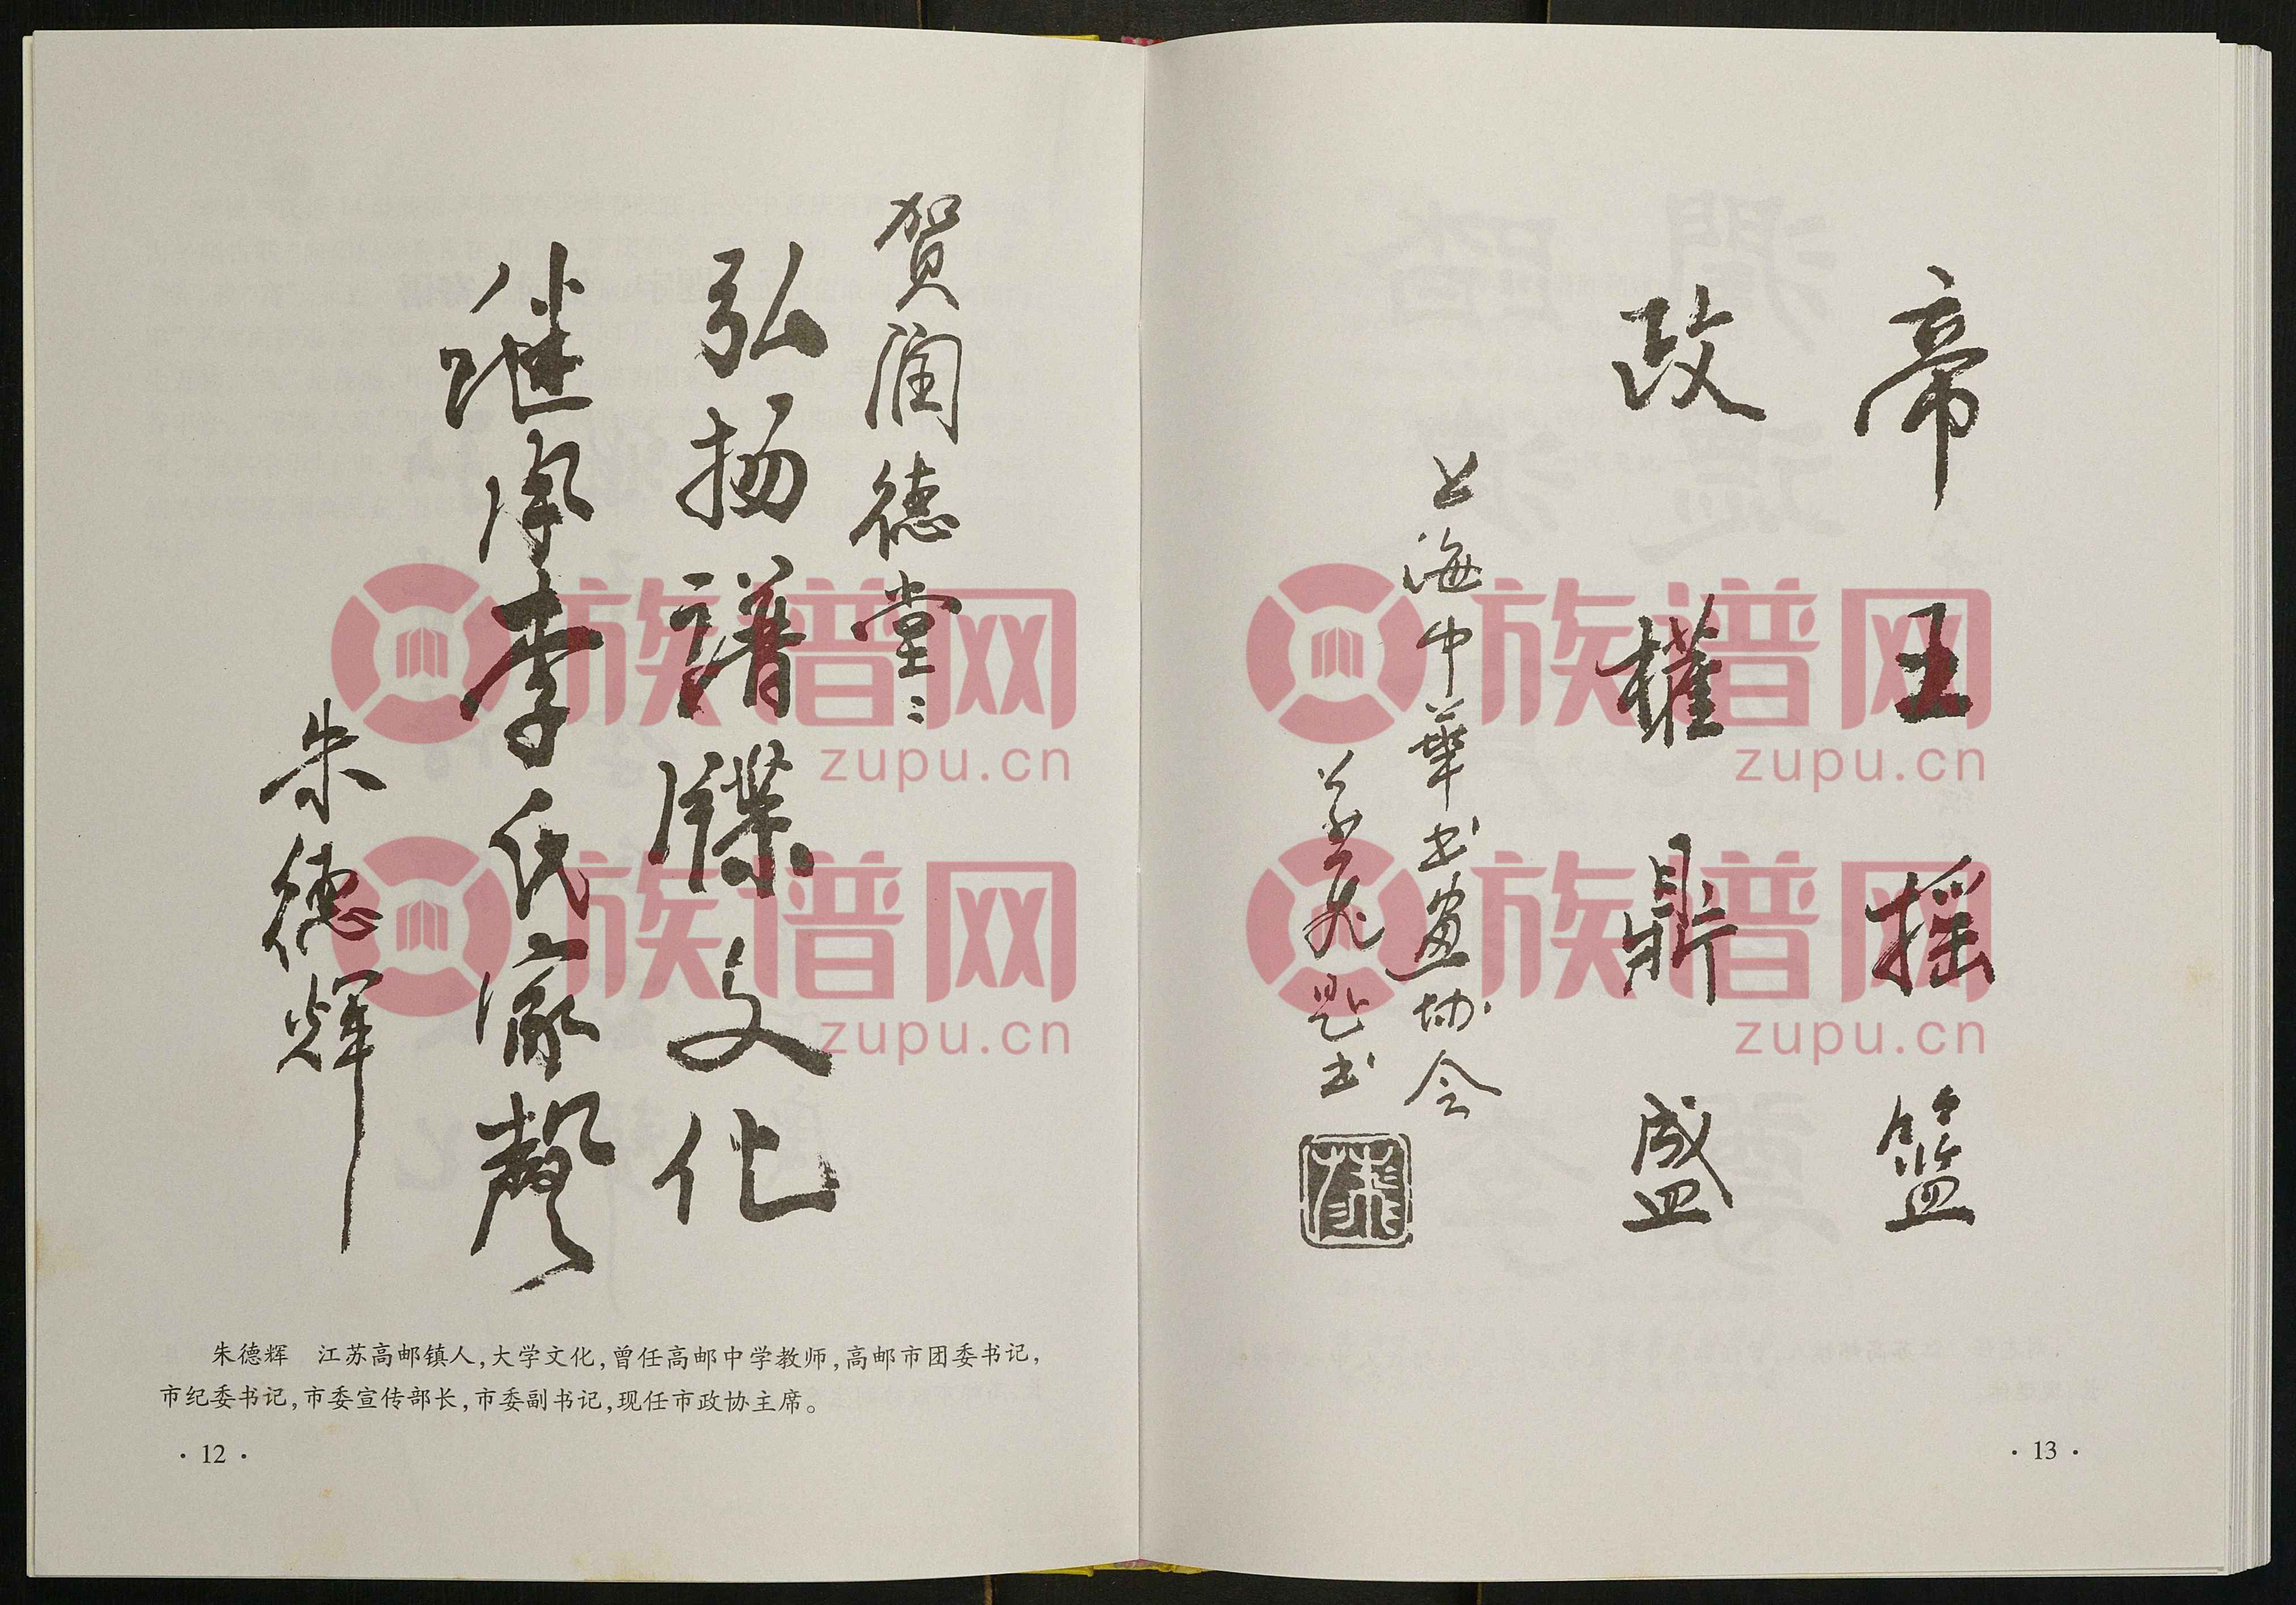 贺润德堂
弘扬譜牒文化
继承李氏家聲
朱德辉
朱德辉 江苏高邮镇人,大学文化,曾任高邮中学教师,高邮市团委书记,
市纪委书记,市委宣传部长,市委副书记,现任市政协主席。
· 12 ·
帝王摇篮
政權鼎盛
上海中華书画协会
题书
· 13 ·
族谱网
zupu.cn
族谱网
zupu.cn
族谱网
zupu.cn
族谱网
zupu.cn